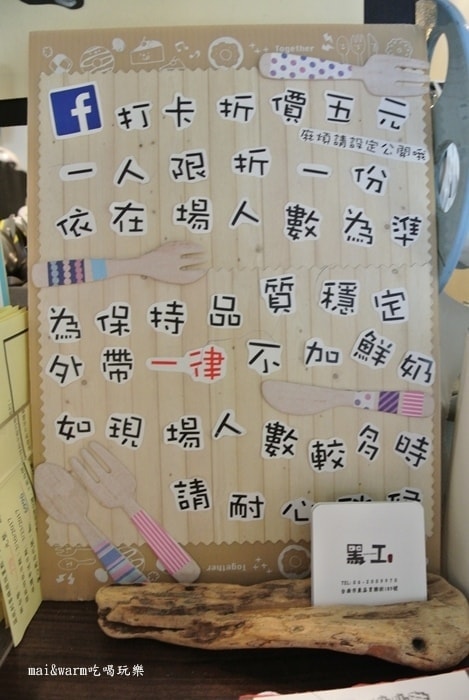 Together
f 打卡折價五元
麻煩請設定公開哦
一人限折一份
依在場人數為準
為保持品質穩定
外帶一律不加鮮奶
如現場人數較多時
請耐心
Together
黑工
mai&warm吃喝玩樂